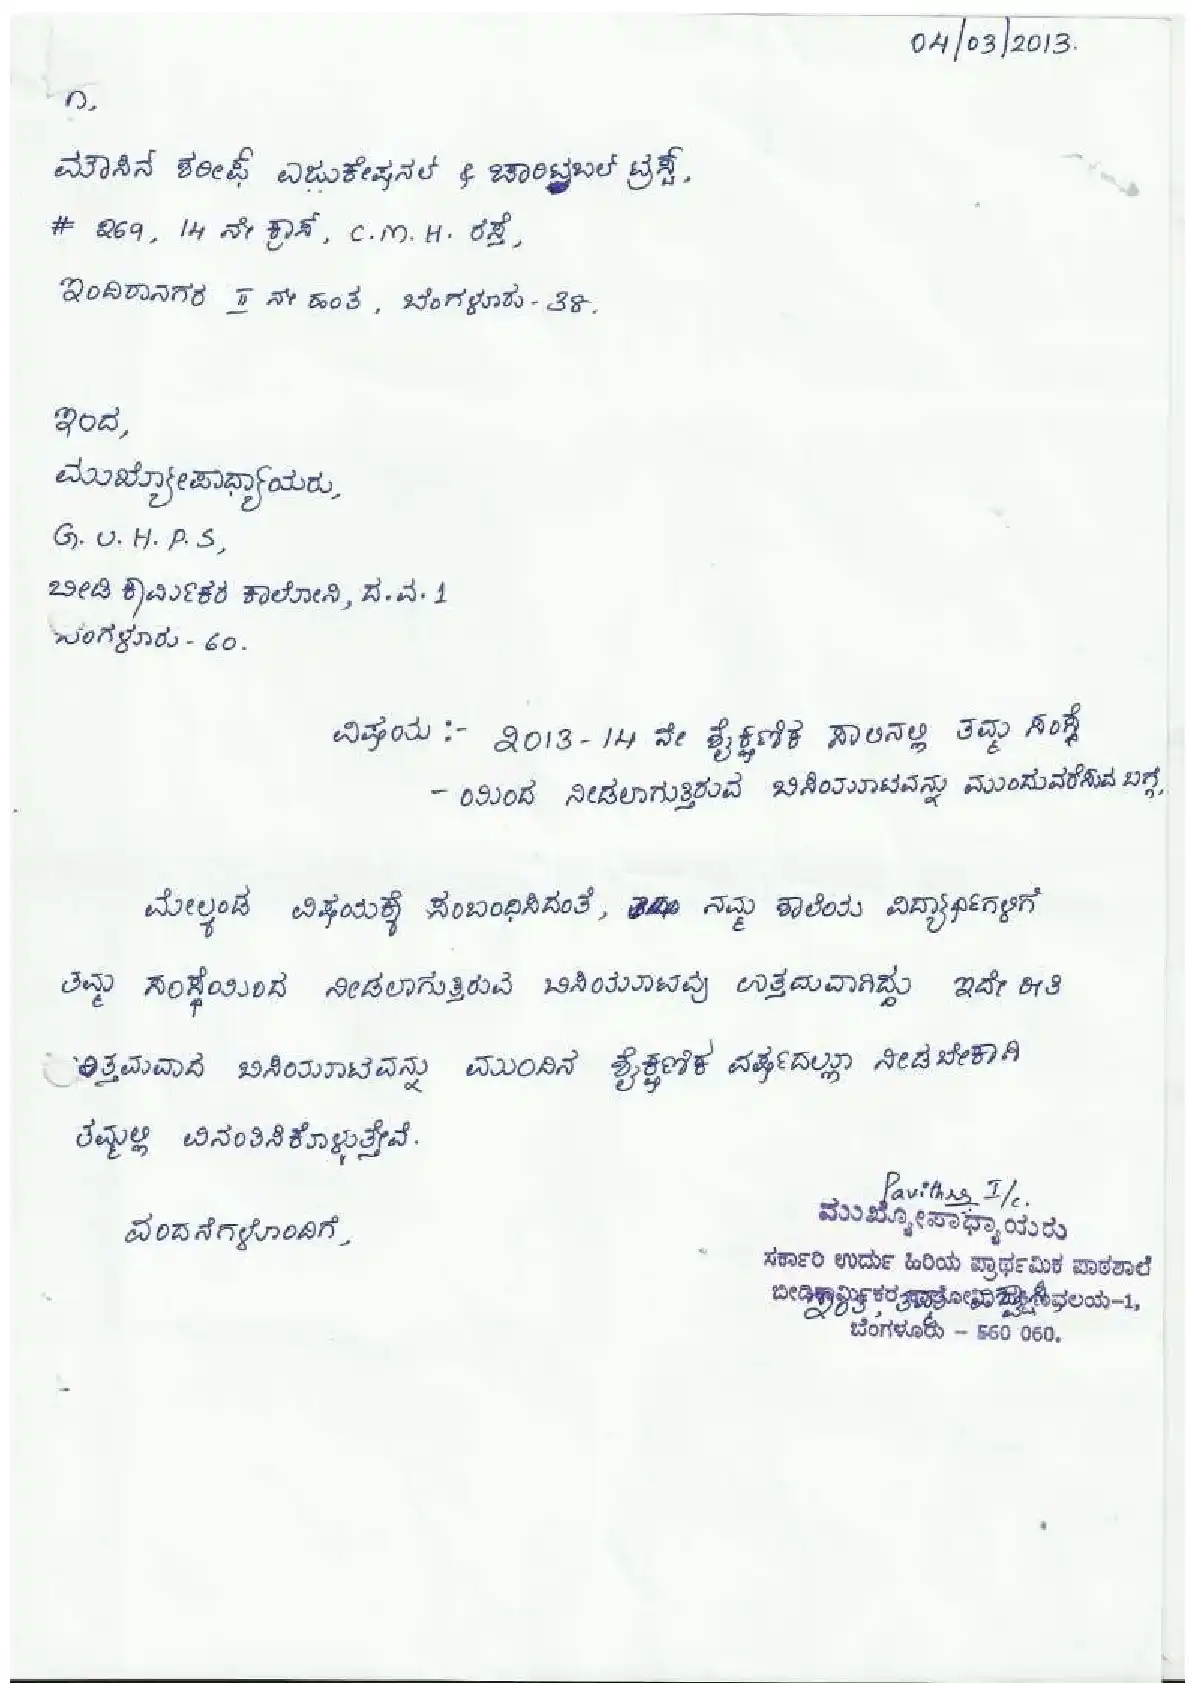 04/03/2013.
ಗೆ,
ಮೌಸಿನ ಶರೀಫ್ ಎಜುಕೇಷನಲ್ & ಚಾರಿಟ್ರಬಲ್ ಟ್ರಸ್ಟ್,
# 269, 14 ನೇ ಕ್ರಾಸ್, C.M.H. ರಸ್ತೆ,
ಇಂದಿರಾನಗರ II ನೇ ಹಂತ, ಬೆಂಗಳೂರು - 38.
ಇಂದ,
ಮುಖ್ಯೋಪಾಧ್ಯಾಯರು,
G. U. H. P. S,
ಬೀಡಿ ಕಾರ್ಮಿಕರ ಕಾಲೋನಿ, ದ.ವ. 1
ಬೆಂಗಳೂರು - 60.
ವಿಷಯ :- 2013-14 ನೇ ಶೈಕ್ಷಣಿಕ ಸಾಲಿನಲ್ಲಿ ತಮ್ಮ ಸಂಸ್ಥೆ
- ಯಿಂದ ನೀಡಲಾಗುತ್ತಿರುವ ಬಿಸಿಯೂಟವನ್ನು ಮುಂದುವರೆಸುವ ಬಗ್ಗೆ,
ಮೇಲ್ಕಂಡ ವಿಷಯಕ್ಕೆ ಸಂಬಂಧಿಸಿದಂತೆ, ನಮ್ಮ ಶಾಲೆಯ ವಿದ್ಯಾರ್ಥಿಗಳಿಗೆ
ತಮ್ಮ ಸಂಸ್ಥೆಯಿಂದ ನೀಡಲಾಗುತ್ತಿರುವ ಬಿಸಿಯೂಟವು ಉತ್ತಮವಾಗಿದ್ದು ಇದೇ ರೀತಿ
ಉತ್ತಮವಾದ ಬಿಸಿಯೂಟವನ್ನು ಮುಂದಿನ ಶೈಕ್ಷಣಿಕ ವರ್ಷದಲ್ಲೂ ನೀಡಬೇಕಾಗಿ
ತಮ್ಮಲ್ಲಿ ವಿನಂತಿಸಿಕೊಳ್ಳುತ್ತೇವೆ.
ವಂದನೆಗಳೊಂದಿಗೆ,
Pavithra I/c.
ಮುಖ್ಯೋಪಾಧ್ಯಾಯರು
ಸರ್ಕಾರಿ ಉರ್ದು ಹಿರಿಯ ಪ್ರಾರ್ಥಮಿಕ ಪಾಠಶಾಲೆ
ಬೀಡಿಕಾರ್ಮಿಕರ ವಲಯ-1,
ಬೆಂಗಳೂರು - 560 060.